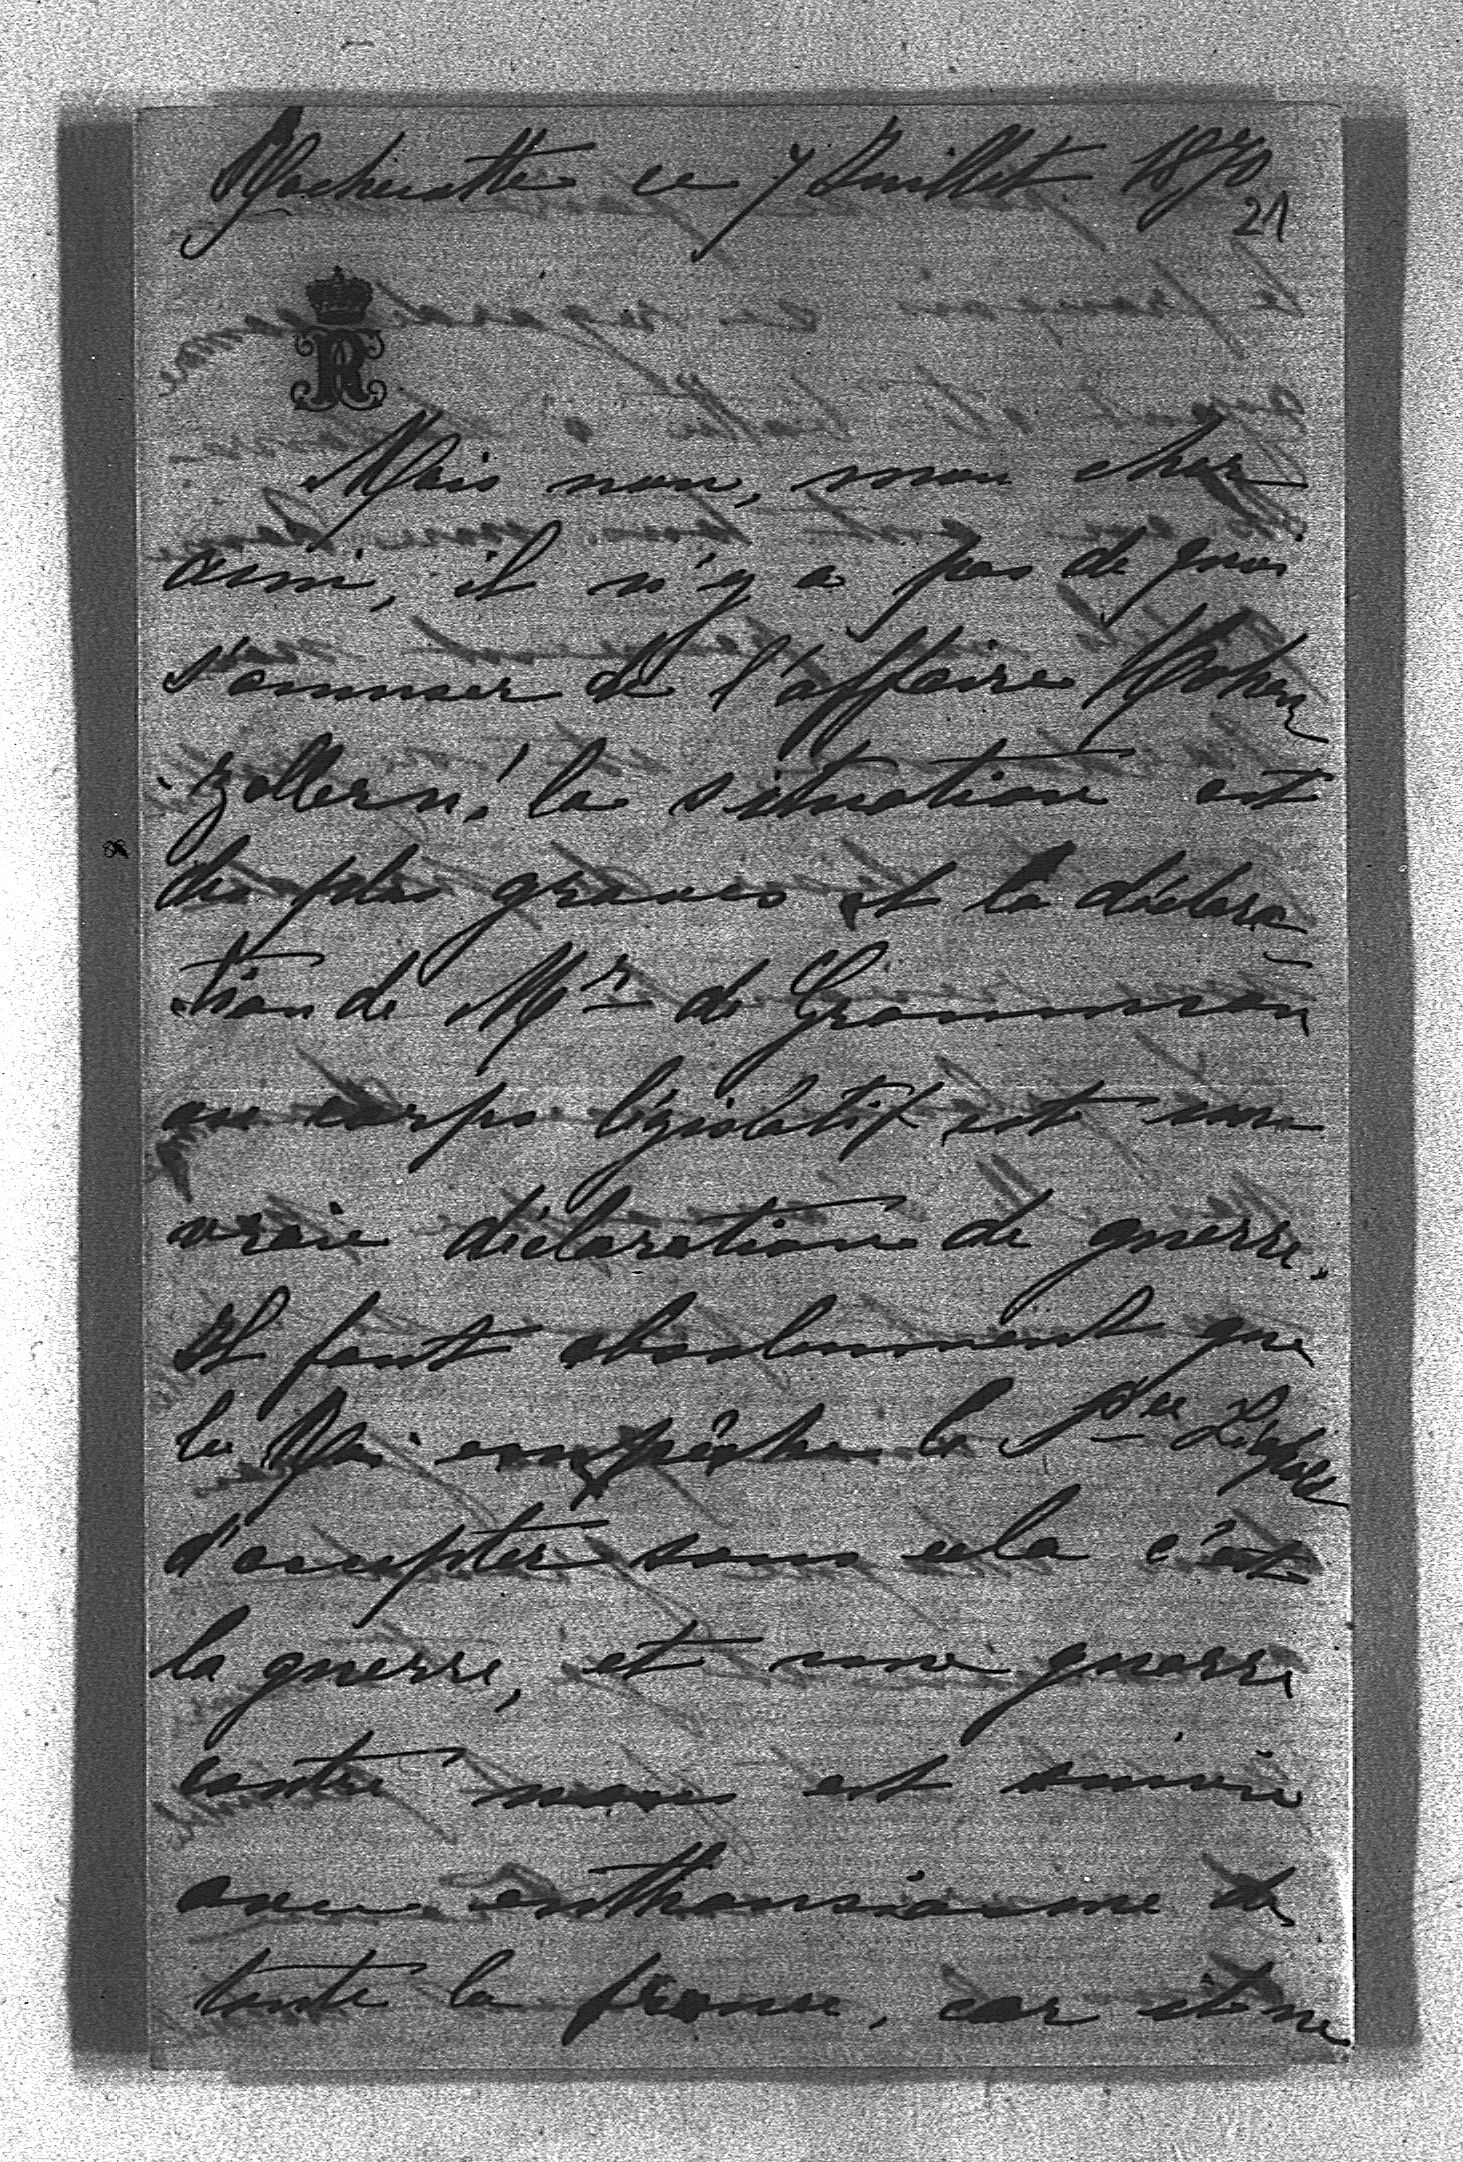 Rochecotte ce 7 Juillet 1870
21
R
Mais non, mon cher
ami, il n'y a pas de quoi
s'amuser de l'affaire Hohen
zollern, la situation est
des plus graves et la déclara-
tion de Mr de Grammon
au corps législatif est une
vraie déclaration de guerre.
Il faut absolument que
le Roi empêche le Pce Léopold
d'accepter sans cela c'est
la guerre, et une guerre
contre nous est suivie
avec enthousiasme de
toute la france, car il ne